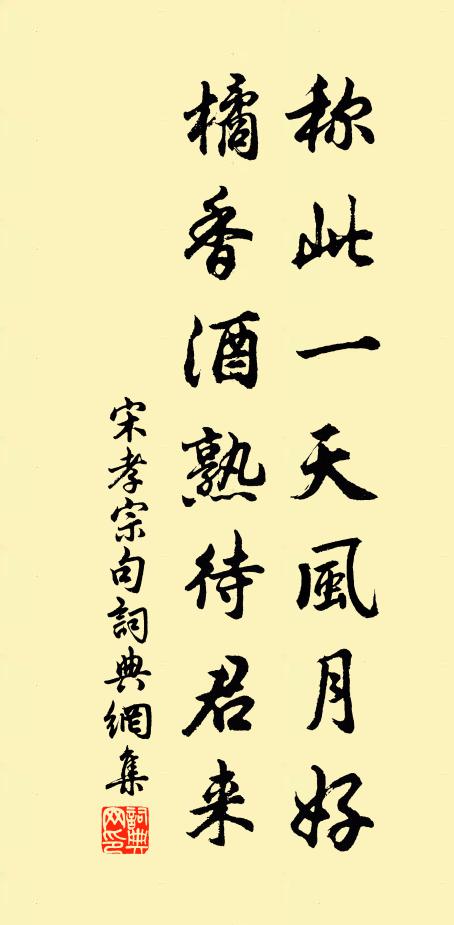 称此一天風月好
橘香酒熟待君来
宋孝宗句詞典網集
詞典網印